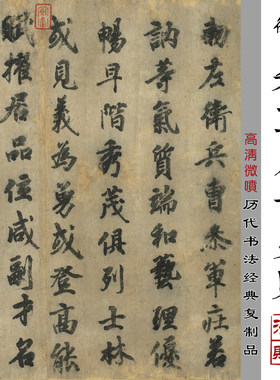 高清微噴
历代书法经典复制品
勅左衛兵曹參軍莊若
訥等氣質瑞和藝理優
暢早階秀茂俱列士林
或見義為勇或登高能
賦擢居品位咸副才名